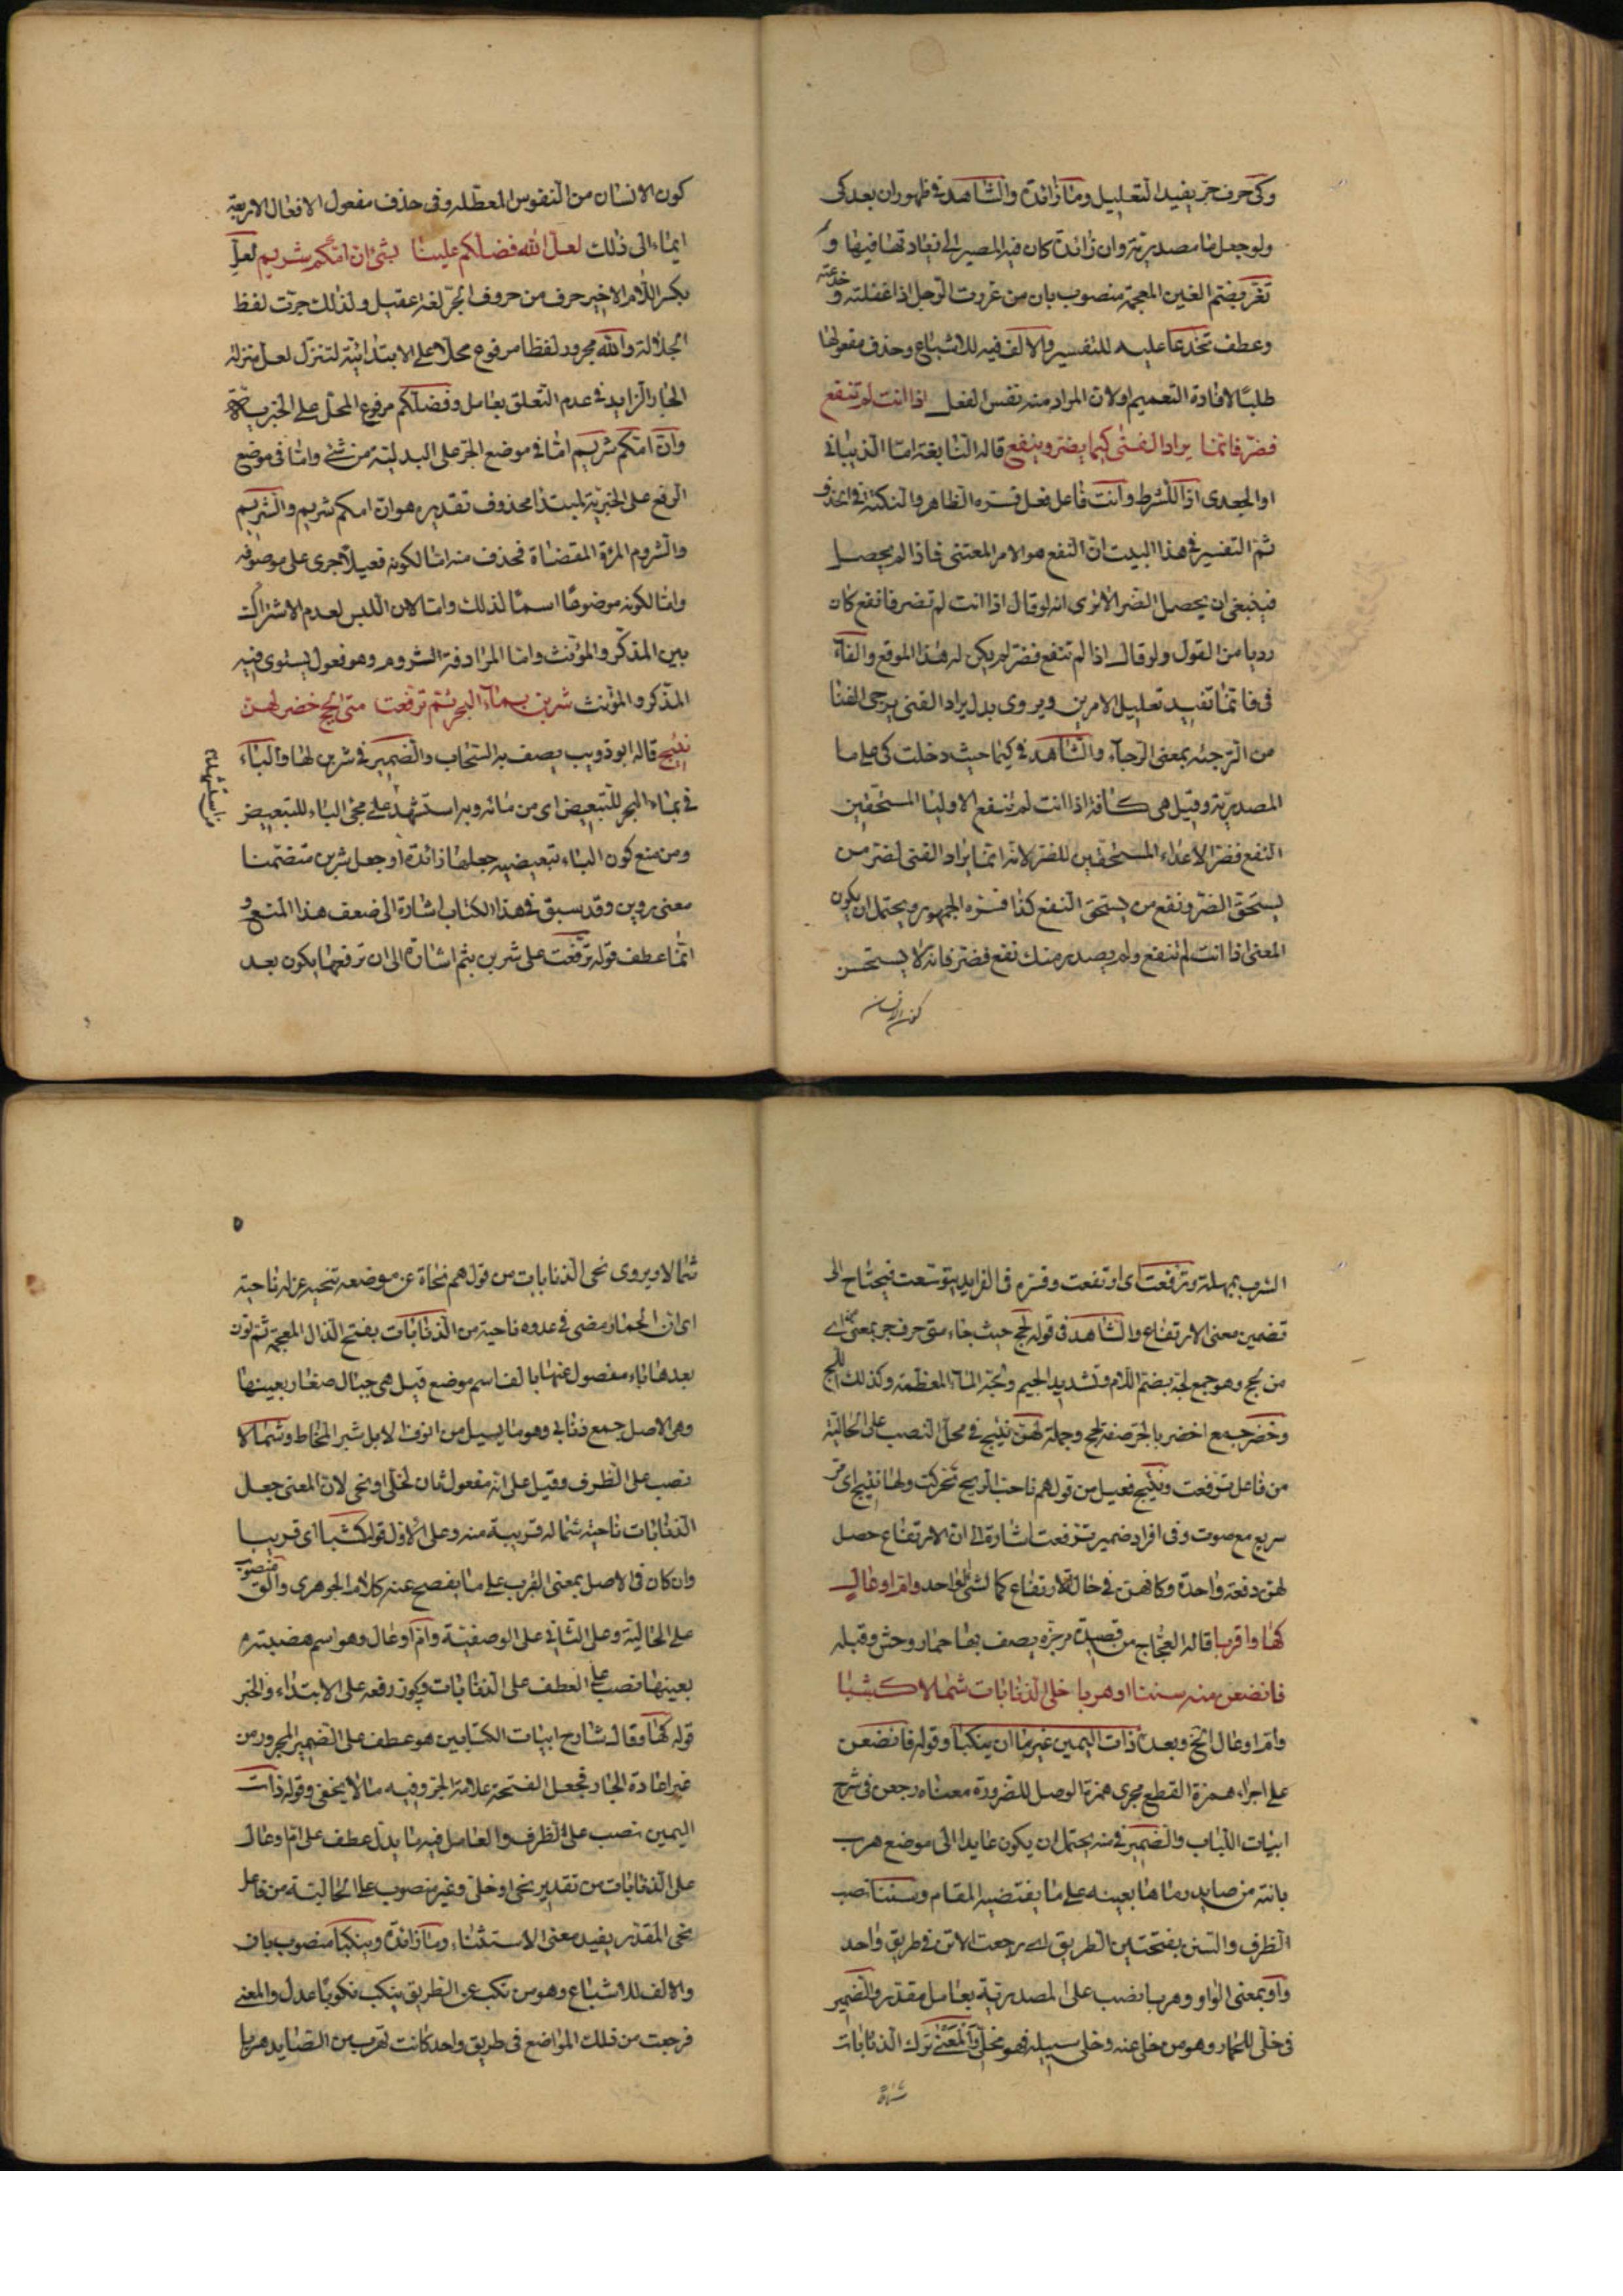 وكى حرف جر يفيد التعليل وما زائدة والشاهد فى ظهور ان بعد كى
ولو جعل ما مصدرية وان زائدة كان فيه المصير الى فيها و
تغر بضم الغين المعجمة منصوب بان من غررت الرجل اذا غفلته و خدعته
وعطف تخدعا عليه للتفسير والالف فيه للاشباع وحذف مفعولها
طلبًا لافادة التعميم او لان المراد منه نفس الفعل اذا انت لم تنفع
فضر فانما يراد الفتى كيما يضر وينفع قاله النابغة اما الذبيانى
او الجعدى اذا للشرط وانت فاعل فعل فسره الظاهر والنكتة فى الحذف
ثم التفسير فى هذا البيت ان النفع هو الامر المعتنى فاذا لم يحصل
فينبغى ان يحصل الضر الا ترى انه لو قال اذا انت لم تضر فانفع كان
رديا من القول ولو قال اذا لم تنفع فضر لم يكن له هذا الموقع والفاء
فى فانما تفيد تعليل الامرين ويروى بدل يراد الفتى يرجى الفتا
من الترجية بمعنى الرجاء والشاهد فى كيما حيث دخلت كى على ما
المصدرية وقيل هى كافة اذا انت لم تنفع الاوليا المستحقين
النفع فضر الاعداء المستحقين للضر لانه انما يراد الفتى لضر من
يستحق الضر ونفع من يستحق النفع كذا فسره الجمهور ويحتمل ان يكون
المعنى اذا انت لم تنفع ولم يصدر منك نفع فضر فانه لا يستحسن
كون الانسان
كون الانسان من النفوس المعطلة وفى حذف مفعول الافعال الاربعة
ايماء الى ذلك لعل الله فضلكم علينا بشئ ان امكم شريم لعل
بكسر اللام الاخير حرف من حروف الجر لغة عقيل ولذلك جرت لفظ
الجلالة والله مجرور لفظا مرفوع محلا على الابتدائية لتنزل لعل منزلة
الجار الزايد فى عدم التعلق بعامل وفضلكم مرفوع المحل على الخبرية
وان امكم شريم اما فى موضع الجر على البدلية من شئ واما فى موضع
الرفع على الخبرية لمبتدا محذوف تقديره هو ان امكم شريم والشريم
والشروم المرءة المفضاة فحذف منه اما لكونه فعيلا جرى على موصوفه
واما لكونه موضوعًا اسمًا لذلك واما لان اللبس لعدم الاشتراك
بين المذكر والمؤنث واما المرادفة الشروم وهو فعول يستوى فيه
المذكر والمؤنث شربن بماء البحر ثم ترفعت متى لجج خضر لهن
نئيج قاله ابو ذويب يصف به السحاب والضمير فى شربن لها والباء
فى بماء البحر للتبعيض اى من مائه وبه استشهد على مجئ الباء للتبعيض
ومن منع كون الباء تبعيضيه جعلها زائدة او جعل شربن متضمنا
معنى روين وقد سبق فى هذا الكتاب اشارة الى ضعف هذا المنع و
انما عطف قوله ترفعت على شربن بثم اشارة الى ان ترفعها يكون بعد
الشرب بمهلة وترفعت اى ارتفعت وفسره فى الفرايد بتوسعت فيحتاج الى
تضمين معنى الارتفاع والشاهد فى قوله لجج حيث جاء متى حرف جر بمعنى من اى
من لجج وهو جمع لجة بضم اللام وتشديد الجيم ولجة الماء المعظمة وكذلك اللج
وخضر جمع اخضر بالجر صفة لجج وجملة لهن نئيج فى محل النصب على الحالية
من فاعل ترفعت ونئيج فعيل من قولهم ناجت الريح تحركت ولها نئيج اى مر
سريع مع صوت وفى افراد ضمير ترفعت اشارة الى ان الارتفاع حصل
لهن دفعة واحدة وكانهن فى حالة الارتفاع كالشئ الواحد وام اوعال
كها او اقربا قاله العجاج من قصيدة مرجزه يصف بها حمار وحش وقبله
فانضعن منه سننا او هربا خلى الذنابات شمالا كثبا
وام اوعال الخ وبعده ذات اليمين غير ما ان ينكبا وقوله فانضعن
على اجراء همزة القطع مجرى همزة الوصل للضرورة معناه رجعن فى شرح
ابيات اللباب والضمير فى منه يحتمل ان يكون عايدا الى موضع هرب
بانته من صايد رماها بعينه على ما يقتضيه المقام وسننا نصب
الظرف والسنن بفتحتين الطريق اى رجعت الاتن فى طريق واحد
واو بمعنى الواو وهربا نصب على المصدرية بعامل مقدر والضمير
فى خلى للحمار وهو من خلى عنه وخلى سبيله فهو مخلى والمعنى ترك الذنابات
شمالا
٥
شمالا ويروى نحى الذنابات من قولهم نحاة عن موضعه تنحيه عزله ناحيته
اى ان الحمار مضى فى عدوه ناحية من الذنابات بفتح الذال المعجمة ثم نون
بعدها باء مفصول عنها بالف اسم موضع قيل هى جبال صغار بعينها
وهى الاصل جمع ذنابى وهو ما يسيل من انوف الابل شبر المخاط وشمالا
نصب على الظرف وقيل على انه مفعول ثان لخلى او نحى لان المعنى جعل
الذنابات ناحية شماله قريبة منه وعلى الاول قوله كثبا اى قريبا
وان كان فى الاصل بمعنى القرب على ما يفصح عنه كلام الجوهرى والق منصوب
على الحالية وعلى الثانى على الوصفية وام اوعال وهو اسم هضبة
بعينها نصب على العطف على الذنابات ويكون رفعه على الابتداء والخبر
قوله كها وقال شارح ابيات الكتابين هو عطف على الضمير المجرور من
غير اعادة الجار فجعل الفتحة علامة الجر وفيه ما لا يخفى وقوله ذات
اليمين نصب على الظرف والعامل فيه ما يدل عطف على ام اوعال
على الذنابات من تقدير نحى او خلى وغير منصوب على الحالية من فاعل
نحى المقدر يفيد معنى الاستثناء وما زائدة وينكبا منصوب بان
والالف للاشباع وهو من نكب عن الطريق ينكب نكوبًا عدل والمعنى
فرجعت من تلك المواضع فى طريق واحد كانت تهرب من الصايد هربا